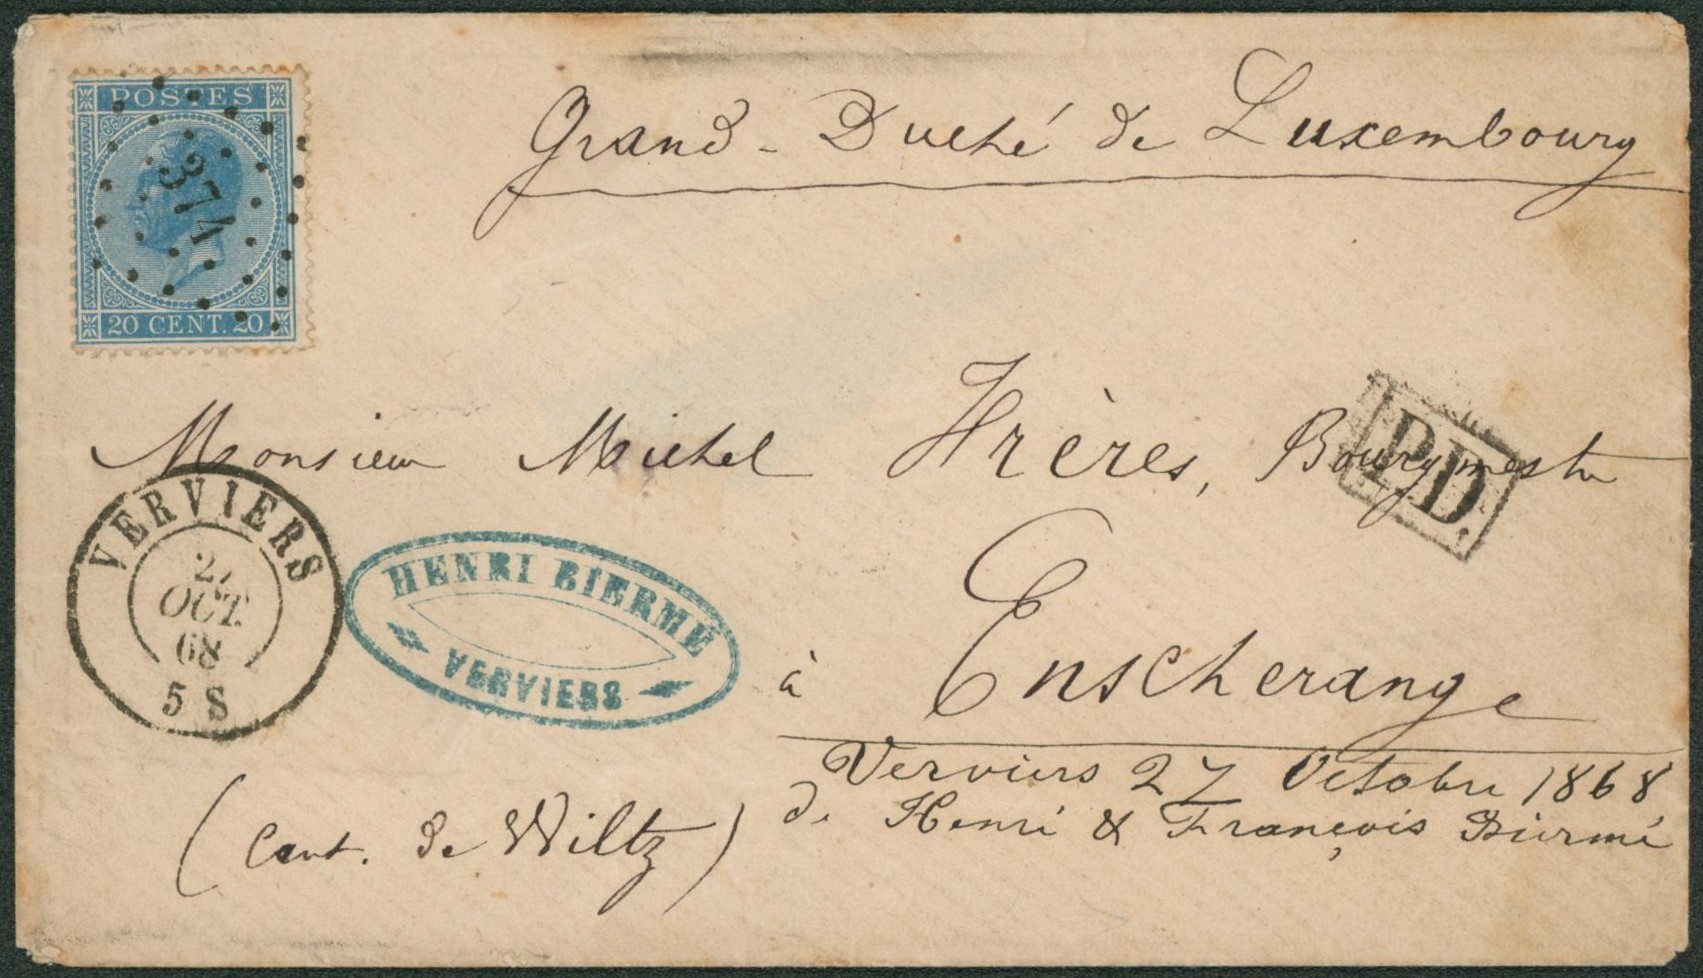 POSTES
374
20 CENT. 20
Grand-Duché de Luxembourg
Monsieur Michel Frères, Bourgmestre
P.D.
VERVIERS
27
OCT.
68
5 S
HENRI BIERMÉ
VERVIERS
à Enscherange
Verviers 27 Octobre 1868
de Henri & François Biermé
(Cant. de Wiltz)